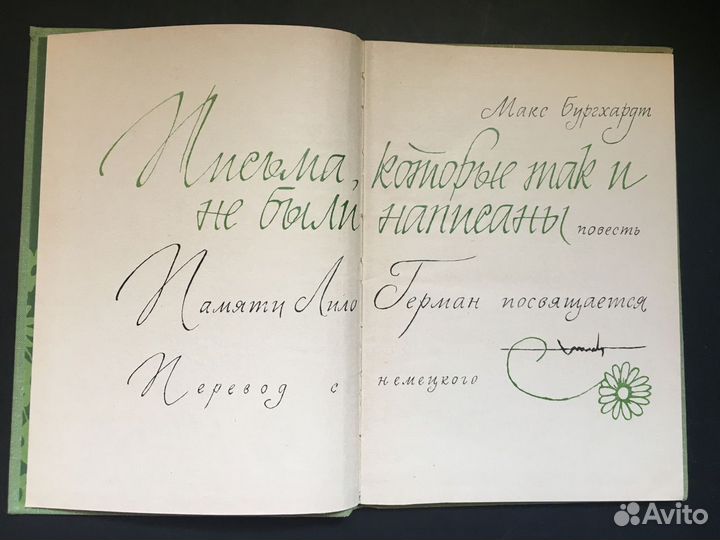 Макс Бургхардт
Письма, которые так и
не были написаны
повесть
Памяти Лило Герман посвящается
Перевод с немецкого
Avito